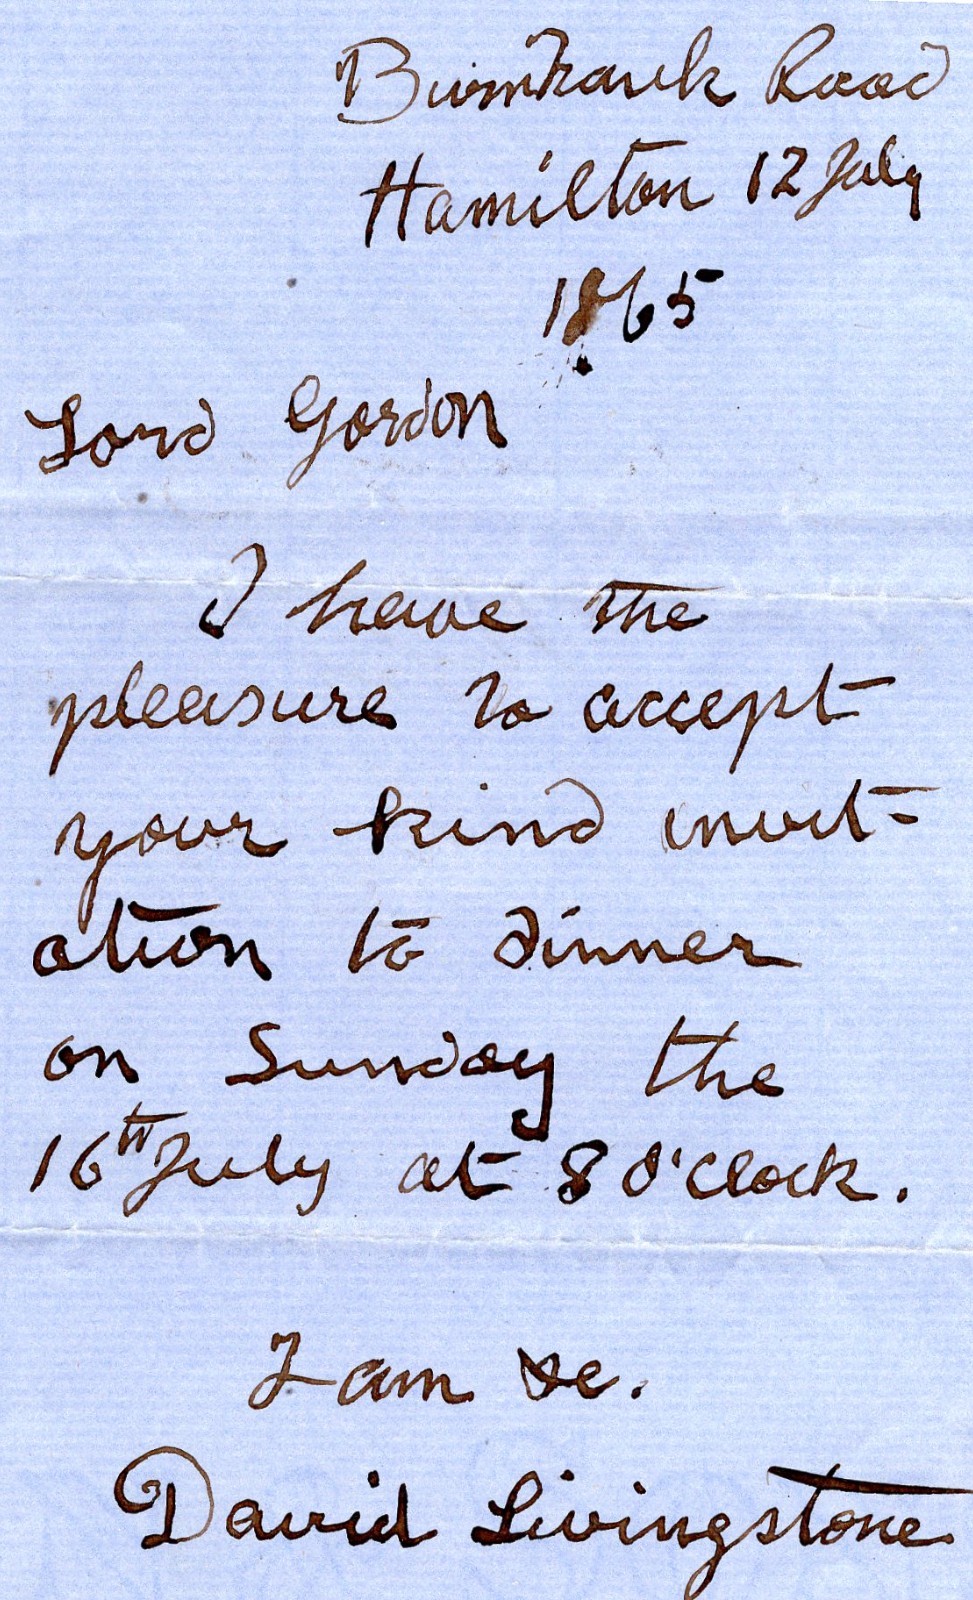 Burnbank Road
Hamilton 12 July
1865
Lord Gordon
I have the
pleasure to accept
your kind invit-
ation to dinner
on Sunday the
16th July at 8 O'Clock.
I am &c.
David Livingstone